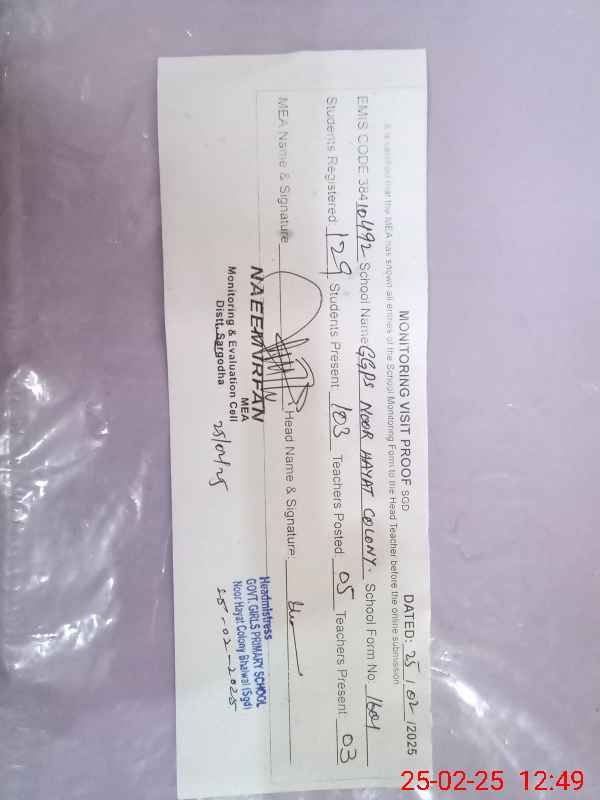 MONITORING VISIT PROOF SGD DATED: 25/02/2025
It is certified that the MEA has shown all entries of the School Monitoring Form to the Head Teacher before the online submission
EMIS CODE 38410492 School Name GGPS NOOR HAYAT COLONY. School Form No: 1601
Students Registered: 129 Students Present: 103 Teachers Posted: 05 Teachers Present: 03
MEA Name & Signature: Head Name & Signature:
NAEEM IRFAN
MEA
Monitoring & Evaluation Cell
Distt. Sargodha
25/02/25
Headmistress
GOVT. GIRLS PRIMARY SCHOOL
Noor Hayat Colony Bhalwal (Sgd)
25-02-2025
25-02-25 12:49